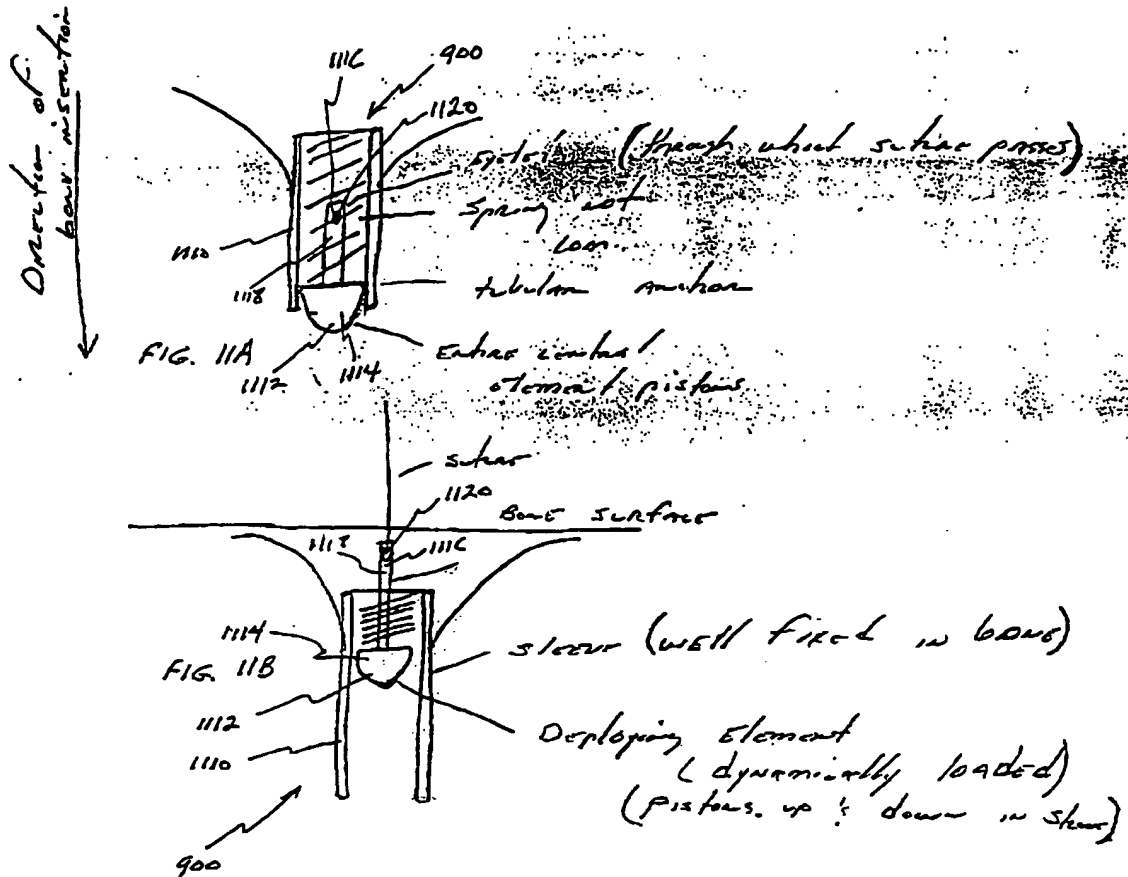 Direction of
bone insertion
1116
900
1120
Eyelet (through which suture passes)
Spring not
1110
1118
tubular anchor
FIG. 11A
1112
1114
Entire central
element pistons
suture
1120
Bone surface
1118
1116
1114
FIG. 11B
sleeve (well fixed in bone)
1112
1110
Deploying Element
(dynamically loaded)
(pistons up & down in sleeve)
900